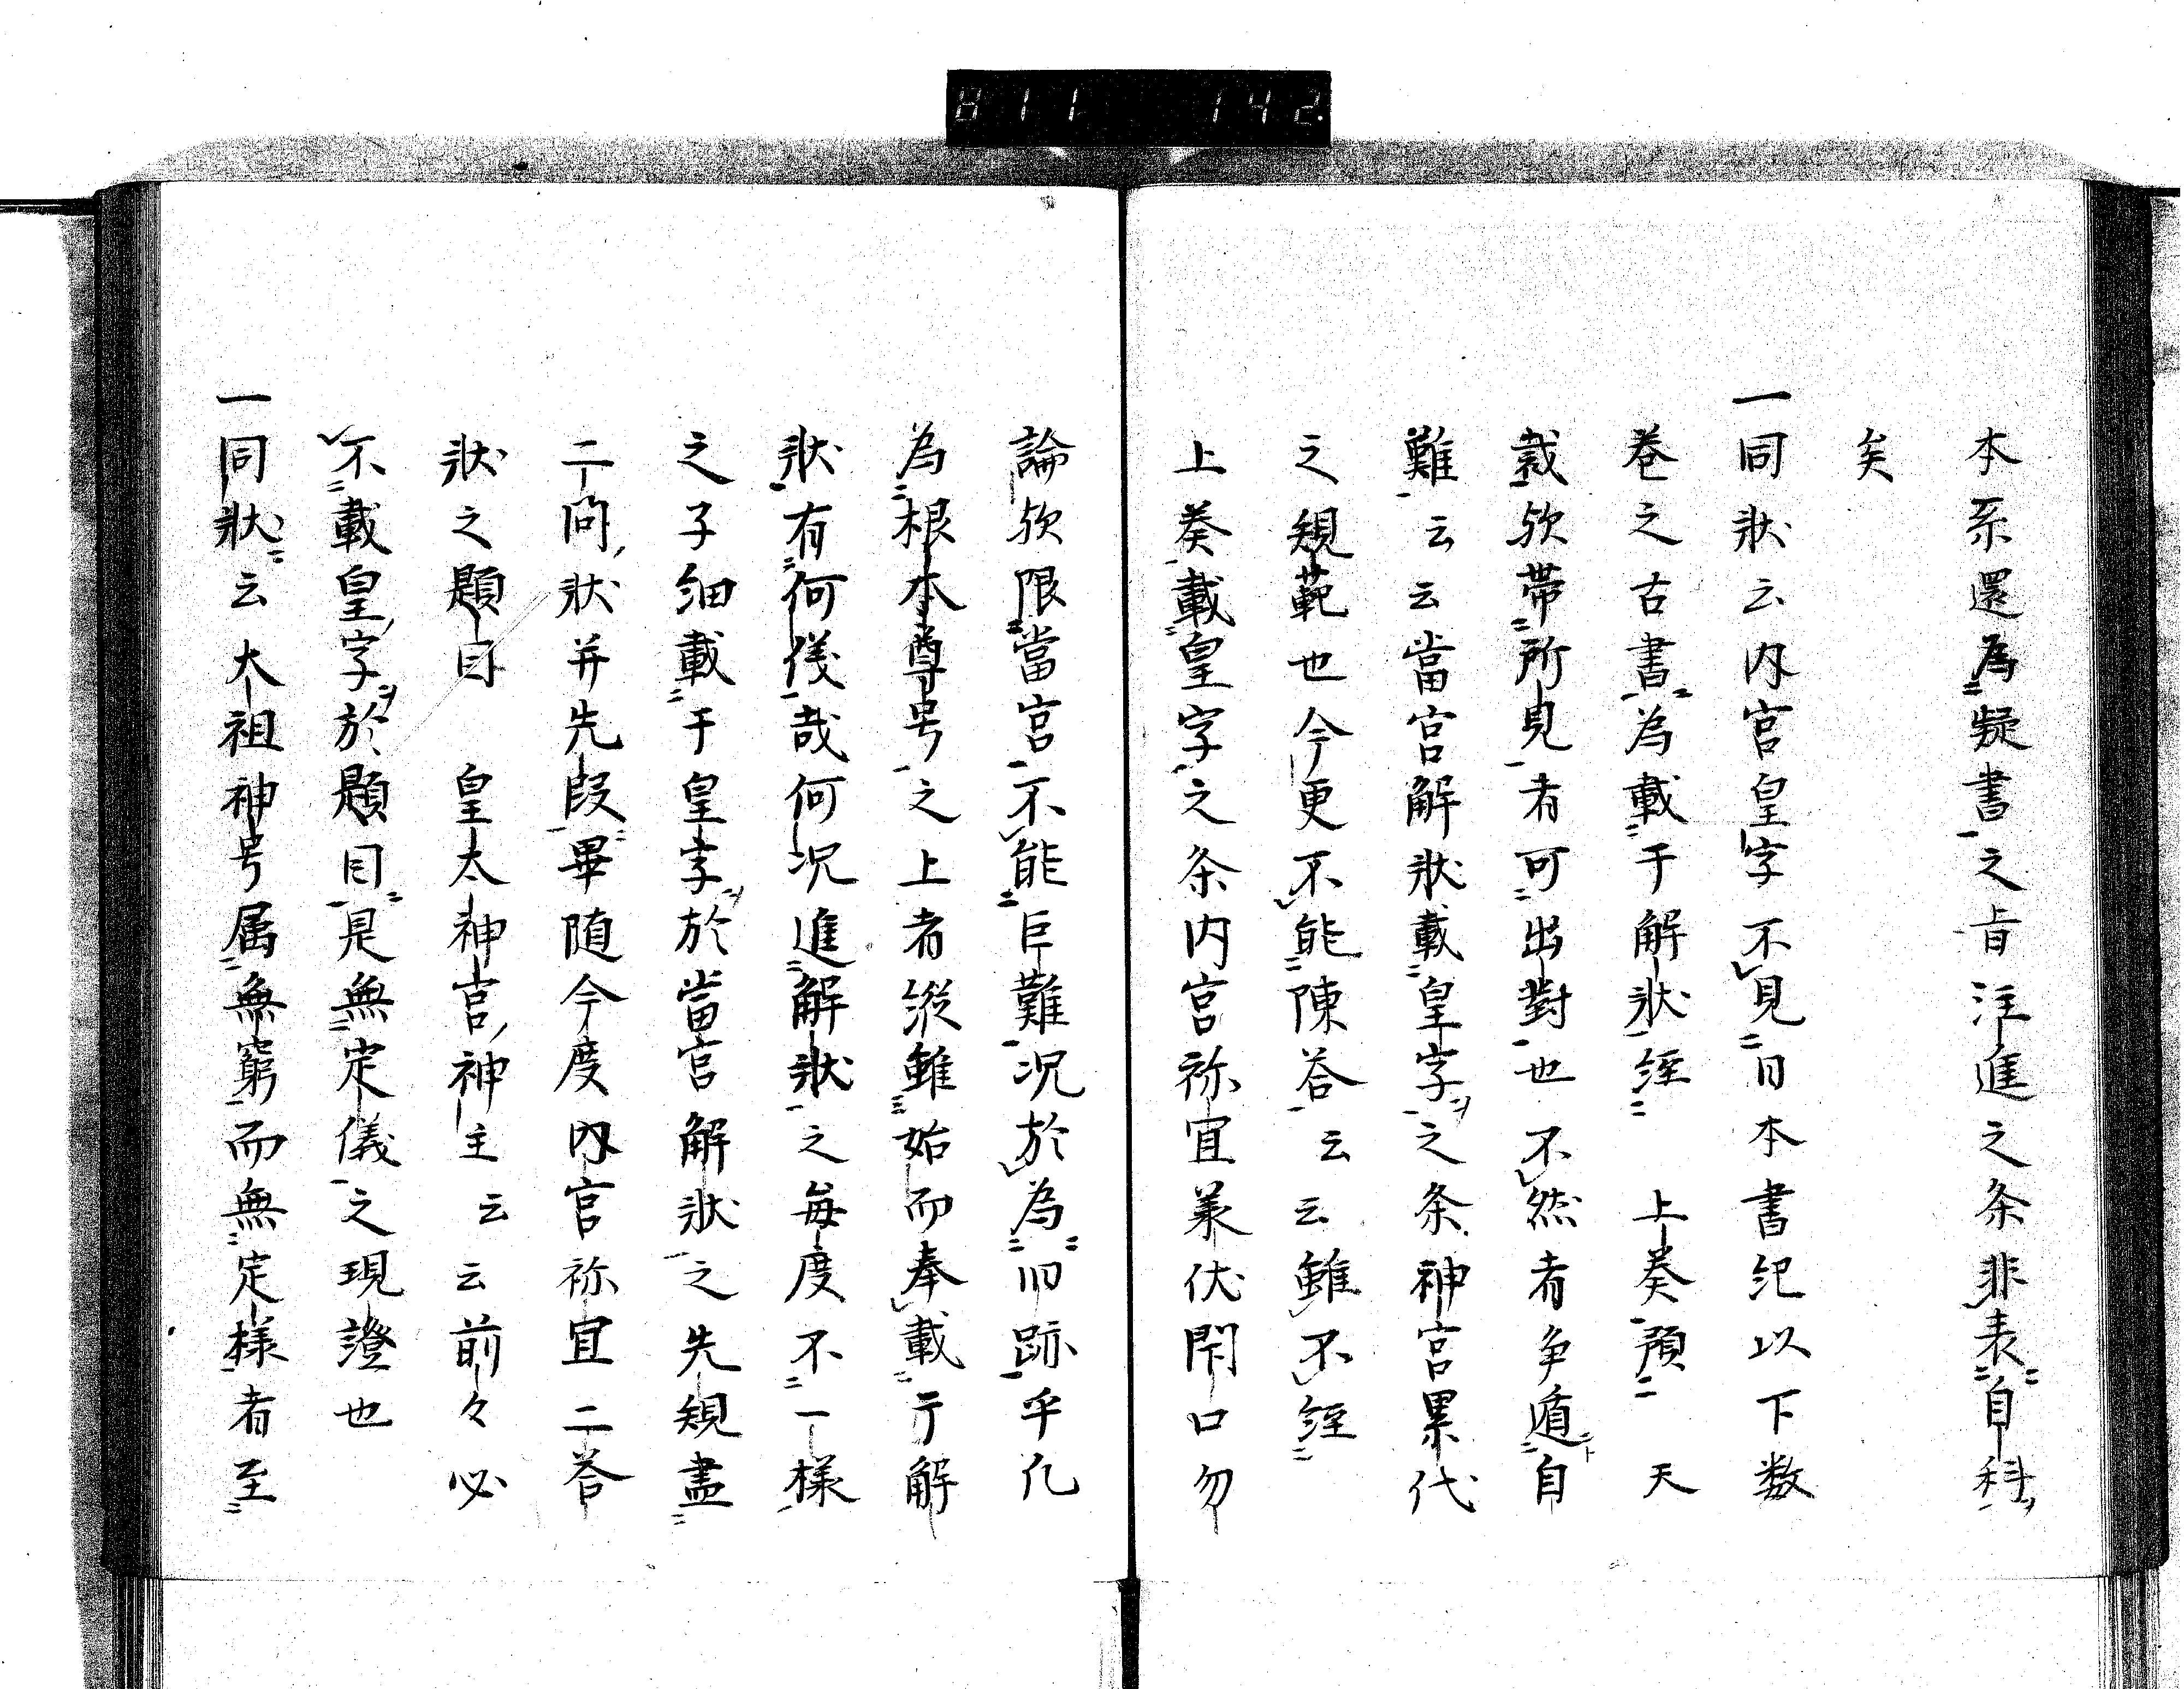 811 142
本系還為疑書之旨注進之条非表自科
矣
一同状云内宮皇字不見日本書紀以下数
巻之古書為載于解状経　上奏預　天
裁欤帯所見者可出對也不然者争遁自
難云云當宮解状載皇字之条神宮累代
之規範也今更不能陳荅云云雖不経
上奏載皇字之条内宮祢宜羕伏閇口勿
論欤限當宮不能巨難况於為旧跡乎凢
為根本尊号之上者縦雖始而奉載于解
状有何儀哉何况進解状之毎度不一様
之子細載于皇字於當宮解状之先規盡
二問状并先段畢随今度内宮祢宜二荅
状之題目　皇太神宮神主云云前々必
不載皇字於題目是無定儀之現證也
一同状云太祖神号属無窮而無定様者至